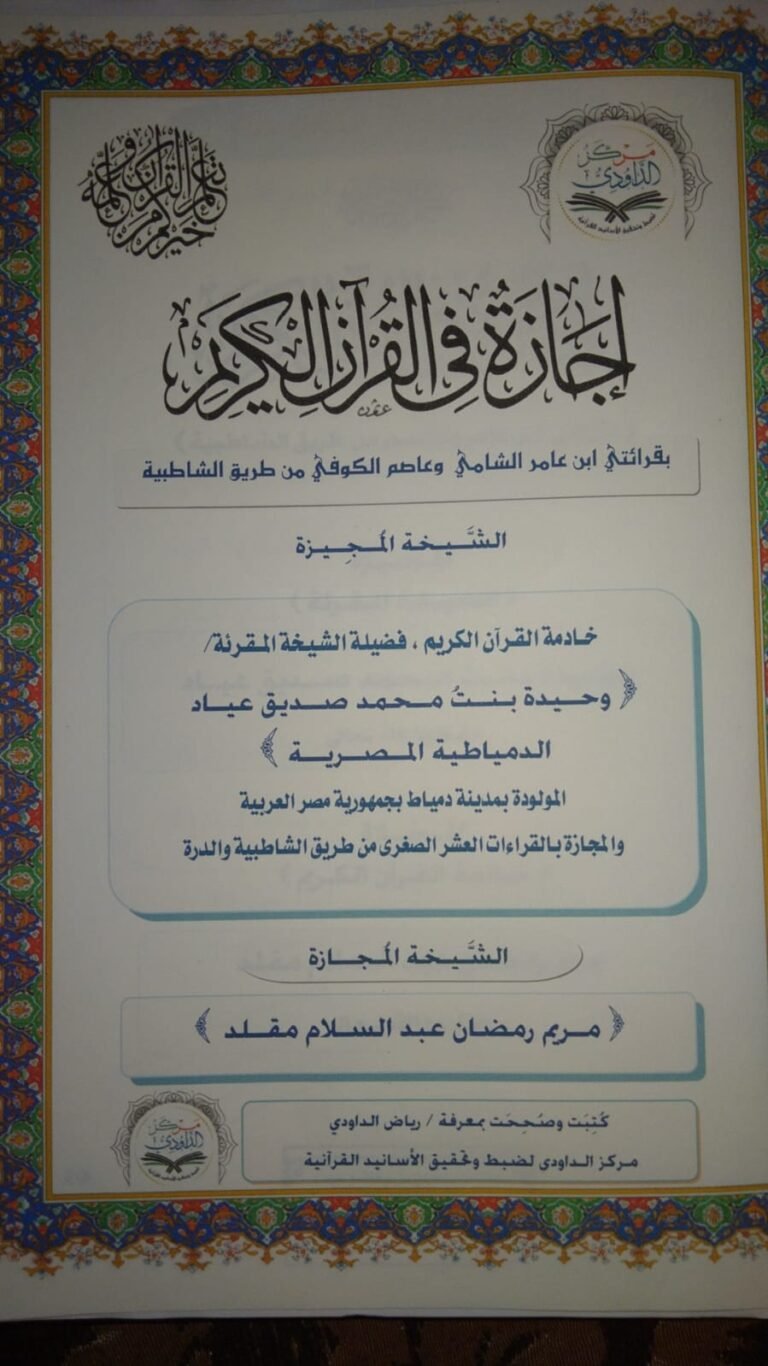 خيركم من تعلم القرآن وعلمه
مركز
الداودي
لضبط وتحقيق الأسانيد القرآنية
إِجَازَةٌ فِي القُرْآنِ الْكَرِيمِ
بقرائتي ابن عامر الشامي وعاصم الكوفي من طريق الشاطبية
الشَّيخة المُجِيزة
خادمة القرآن الكريم ، فضيلة الشيخة المقرئة/
﴿ وحيدة بنتُ محمد صديق عياد
الدمياطية المصرية ﴾
المولودة بمدينة دمياط بجمهورية مصر العربية
والمجازة بالقراءات العشر الصغرى من طريق الشاطبية والدرة
الشَّيخة المُجازة
﴿ مريم رمضان عبد السلام مقلد ﴾
كُتِبَت وصُحِحَت بمعرفة / رياض الداودي
مركز الداودى لضبط وتحقيق الأسانيد القرآنية
مركز
الداودي